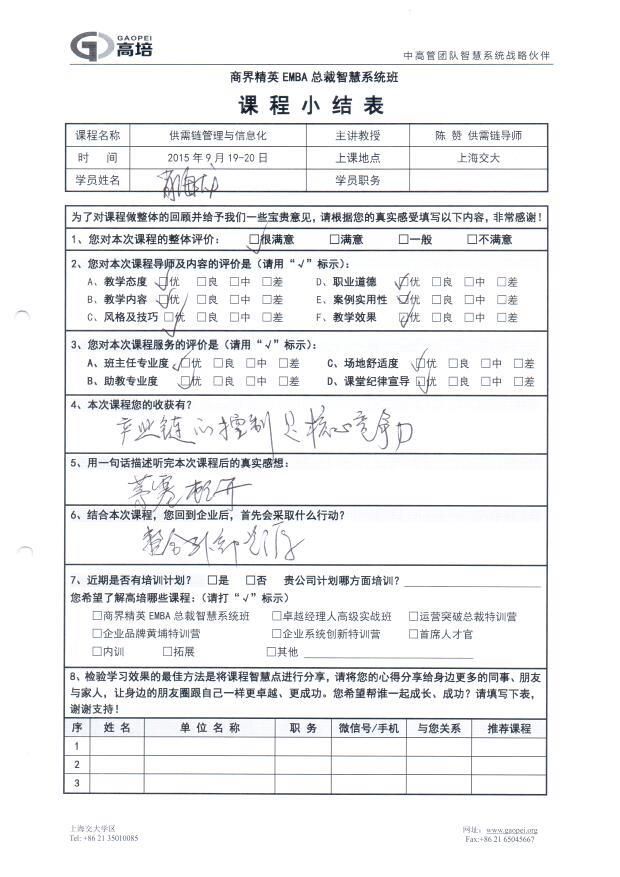 GAOPEI
高培
中高管团队智慧系统战略伙伴
商界精英EMBA总裁智慧系统班
课程小结表
课程名称 供需链管理与信息化 主讲教授 陈 赞 供需链导师
时 间 2015年9月19-20日 上课地点 上海交大
学员姓名 学员职务
为了对课程做整体的回顾并给予我们一些宝贵意见，请根据您的真实感受填写以下内容，非常感谢！
1、您对本次课程的整体评价： ☑很满意 □满意 □一般 □不满意
2、您对本次课程导师及内容的评价是（请用“√”标示）：
A、教学态度 ☑优 □良 □中 □差 D、职业道德 ☑优 □良 □中 □差
B、教学内容 ☑优 □良 □中 □差 E、案例实用性 ☑优 □良 □中 □差
C、风格及技巧 ☑优 □良 □中 □差 F、教学效果 ☑优 □良 □中 □差
3、您对本次课程服务的评价是（请用“√”标示）：
A、班主任专业度 ☑优 □良 □中 □差 C、场地舒适度 ☑优 □良 □中 □差
B、助教专业度 ☑优 □良 □中 □差 D、课堂纪律宣导 ☑优 □良 □中 □差
4、本次课程您的收获有？
产业链的控制是核心竞争力
5、用一句话描述听完本次课程后的真实感想：
茅塞顿开
6、结合本次课程，您回到企业后，首先会采取什么行动？
整合外部资源
7、近期是否有培训计划？ □是 □否 贵公司计划哪方面培训？
您希望了解高培哪些课程：（请打“√”标示）
□商界精英EMBA总裁智慧系统班 □卓越经理人高级实战班 □运营突破总裁特训营
□企业品牌黄埔特训营 □企业系统创新特训营 □首席人才官
□内训 □拓展 □其他
8、检验学习效果的最佳方法是将课程智慧点进行分享，请将您的心得分享给身边更多的同事、朋友
与家人，让身边的朋友圈跟自己一样更卓越、更成功。您希望帮谁一起成长、成功？请填写下表，
谢谢支持！
序 姓名 单位名称 职务 微信号/手机 与您关系 推荐课程
1
2
3
上海交大学区 网址：www.gaopei.org
Tel: +86 21 35010085 Fax:+86 21 65045667